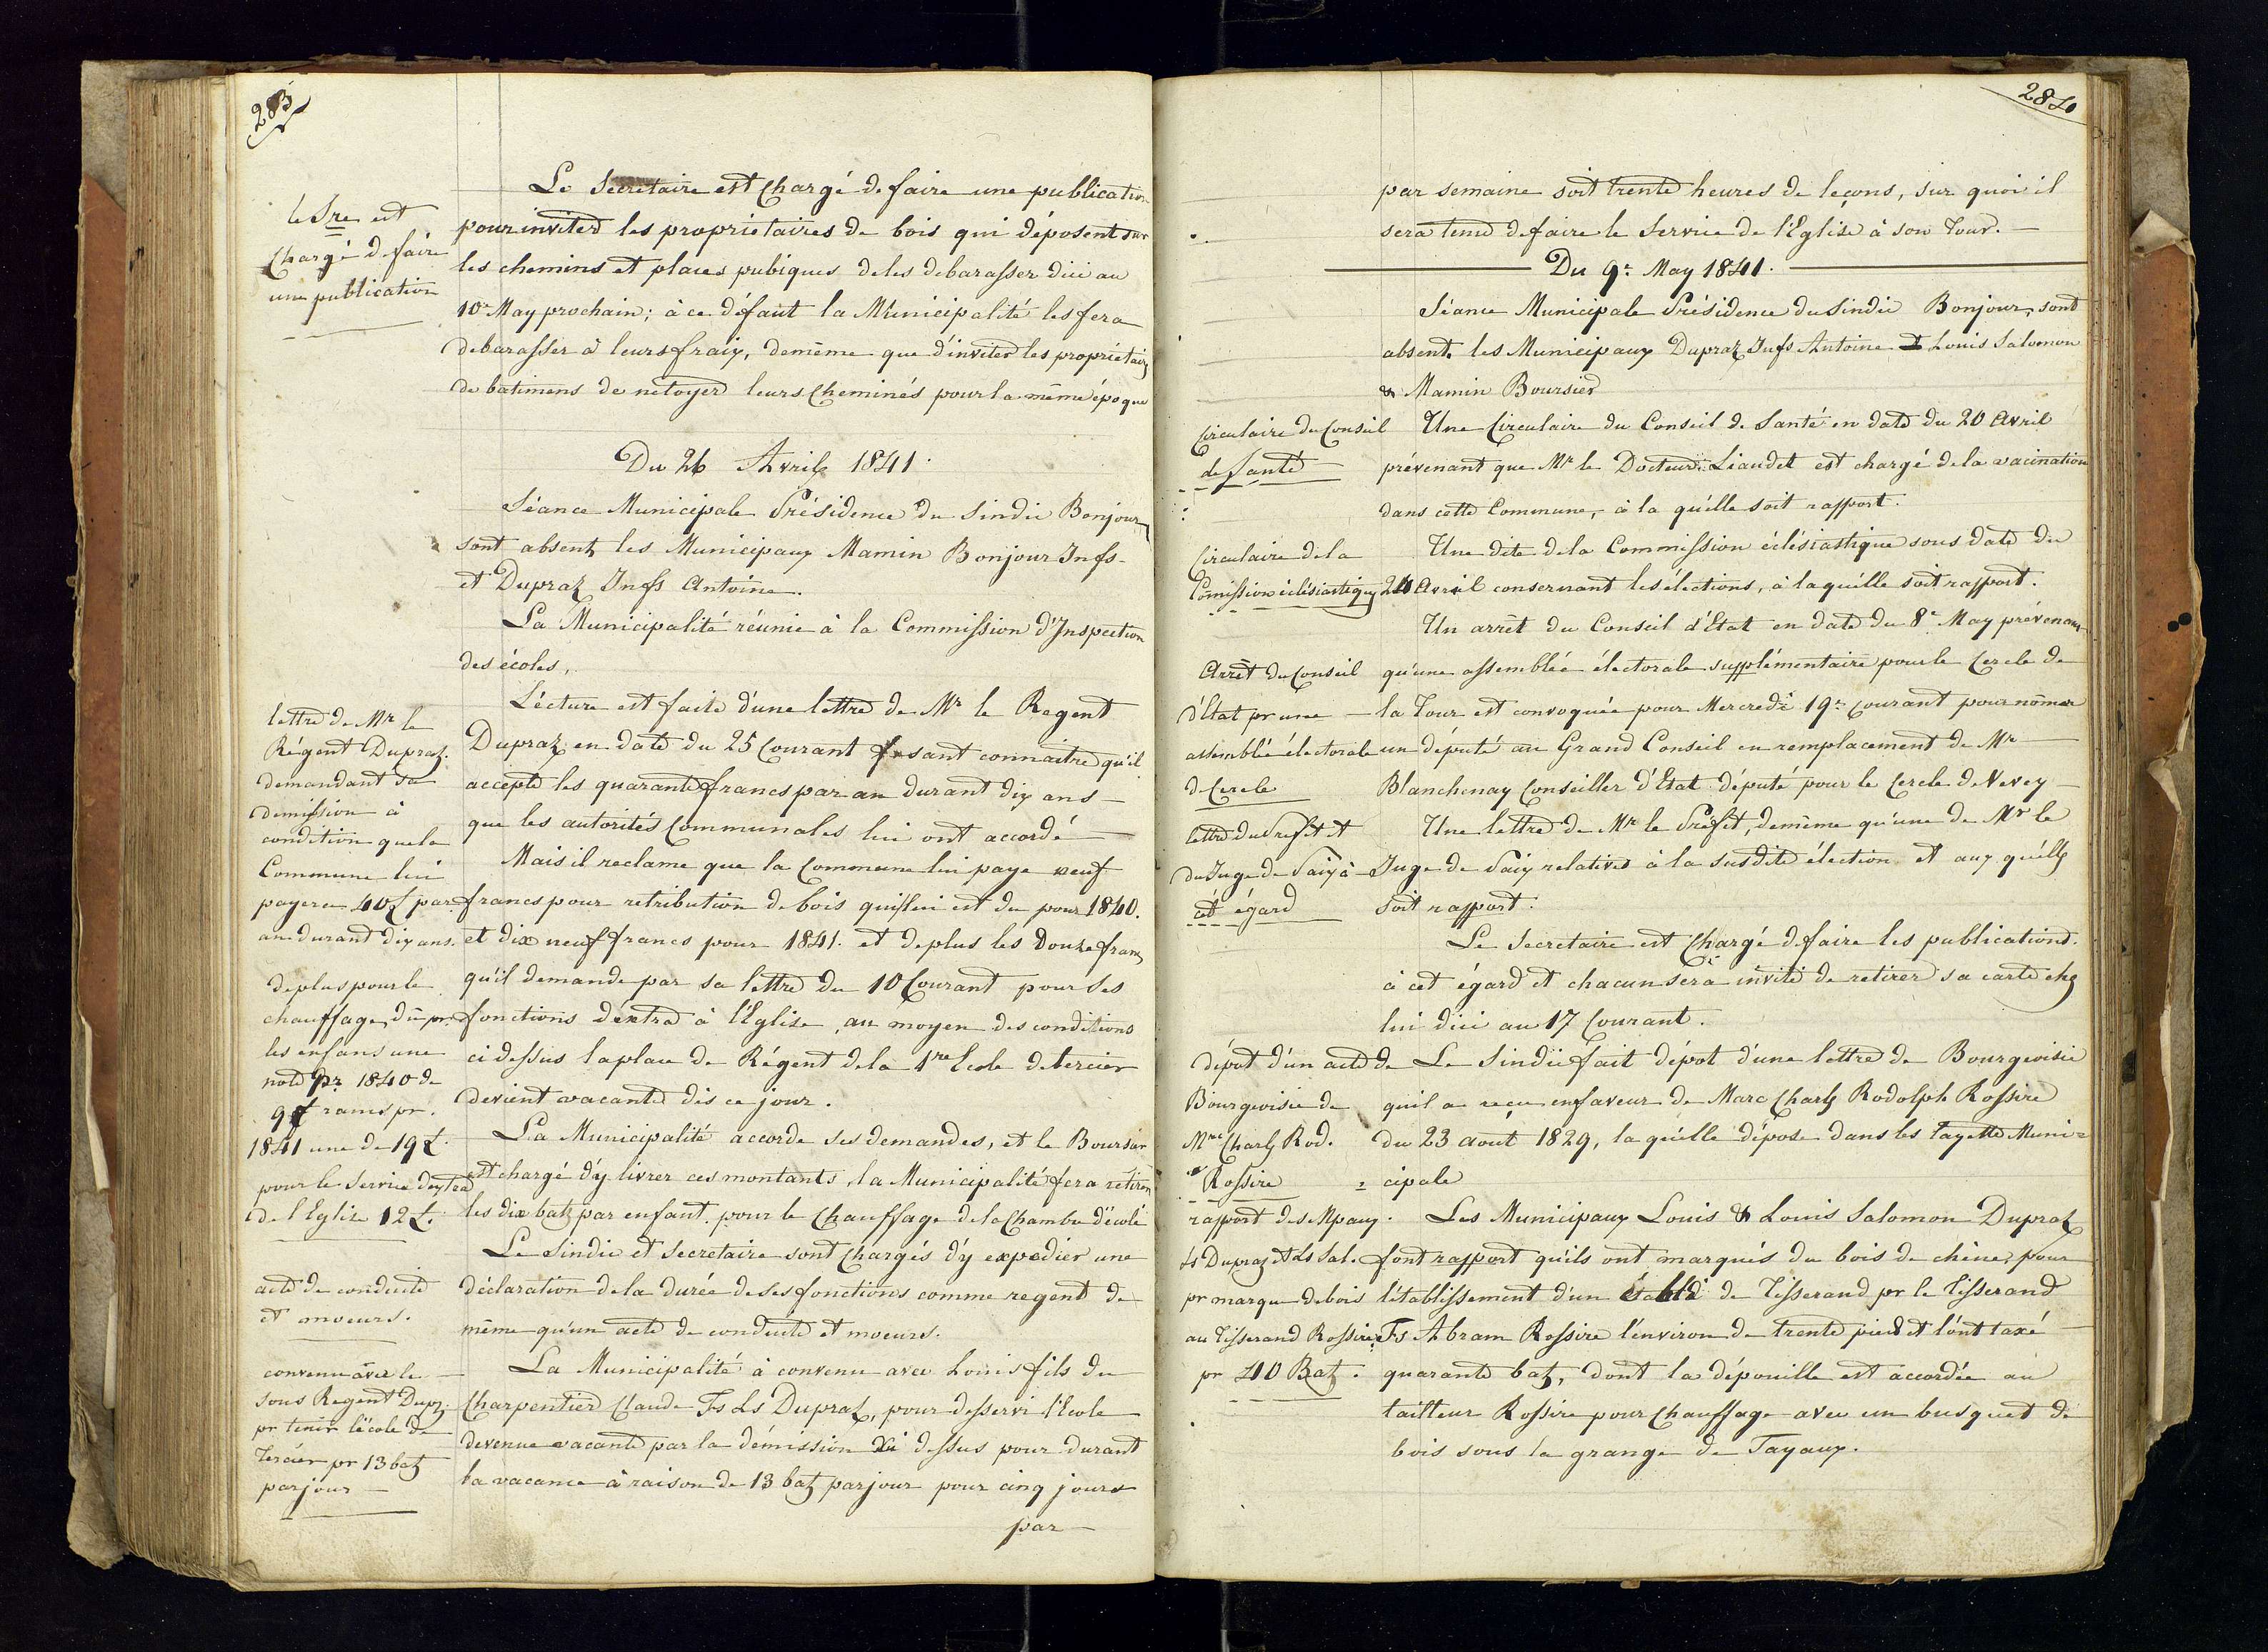 283
le Sre est
Chargé de faire
une publication
Le Secretaire est Chargé de faire une publication
pour inviter les propriétaires de bois qui déposent sur
les chemins et places pubiques de les debarasser dici au
10e May prochain; à ce défaut la Municipalité les fera
debarasser à leurs fraix, demême que d'inviter les propriétaires
de batimens de netoyer leurs Cheminés pour la même époque
Du 26 Avril 1841.
Séance Municipale Présidence du Sindic Bonjour,
sont absents les Municipaux Mamin Bonjour Jnfs.
et Dupraz Jnfs Antoine.
La Municipalité réunie à la Commission d'Inspection
des écoles,
lettre de Mr le
Régent Dupraz.
demandant sa
demission à
condition que la
Commune lui
payera 40 £ par
an durant dix ans.
de plus pour le
chauffage, dû pr.
les enfans une
note pr 1840 de
9 francs pr.
1841 une de 19 £.
pour le Service d'extra
de l'Eglise 12 £.
Lécture est faite d'une lettre de Mr le Regent
Dupraz en date du 25 Courant fesant connaitre qu'il
accepte les quarante francs par an durant dix ans
que les autorités Communales lui ont accordé
Mais il reclame que la Commune lui paye neuf
francs pour retribution de bois qui lui est du pour 1840.
et dix neuf francs pour 1841. et de plus les Douze francs
qu'il demande par sa lettre du 10 Courant pour Ses
fonctions d'extra à l'Eglise, au moyen des conditions
ci dessus la place de Régent de la 1re Ecole de tercier
devient vacante dès ce jour.
La Municipalité accorde ses demandes, et le Boursier
est chargé d'y livrer ces montants, la Municipalité fera retirer
les dix batz par enfant pour le Chauffage de la Chambre d'école
acte de conduite
et moeurs.
Le Sindic et Secretaire sont chargés d'y expedier une
déclaration de la durée de ses fonctions comme regent de
même qu'un acte de conduite et moeurs.
convenu avec le
Sous Regent Dupz.
pr tenir l'école de
Tercier pr 13 batz
par jour
La Municipalité à convenu avec Louis fils du
Charpentier Claude Fs Ls Dupraz, pour desservi l'Ecole
devenue vacante par la démission ci dessus pour durant
la vacance à raison de 13 batz par jour pour cinq jours
par
284
par semaine soit trente heures de leçons, sur quoi il
sera tenu de faire le Service de l'Eglise à son Tour.
Du 9e May 1841.
Séance Municipale Présidence du Sindic Bonjour, sont
absents les Municipaux Dupraz Jnfs Antoine et Louis Salomon
& Mamin Boursier
Circulaire du Conseil
de Santé
Une Circulaire du Conseil de Santé en date du 20 Avril
prévenant que Mr le Docteur Liaudet est chargé de la vacination
dans cette Commune, à la qu'elle soit rapport.
Circulaire de la
Comission éclésiastique
Une dite de la Commission éclésiastique sous date du
24 Avril consernant les élections, à laquélle soit rapport.
Arrêt du Conseil
d'Etat pr une
assemblée électorale
de Cercle
Un arrêt du Conseil d'Etat en date du 8e May prévenant
qu'une assemblée électorale supplémentaire pour le Cercle de
la Tour est convoquée pour Mercredi 19e courant pour nômer
un député au Grand Conseil en remplacement de Mr
Blanchenay Conseiller d'Etat député pour le Cercle de Vevey
lettre du Prefet et
du Juge de Paix à
cet égard
Une lettre de Mr le Préfet, demême qu'une de Mr le
Juge de Paix relatives à la susdite élection et aux qu'elles
soit rapport.
Le Secretaire est Chargé de faire les publications
à cet égard et chacun sera invité de retirer sa carte chez
lui dici au 17 Courant.
dépot d'un acte de
Bourgeoisie de
Mrc Charles Rod.
Rossire
Le Sindic fait dépot d'une lettre de Bourgeoisie
quil a reçu en faveur de Marc Charles Rodolph Rossire
du 23 aout 1829, la qu'elle dépose dans les layette Muni=
=cipale
rapport des Mpaux.
Ls Dupraz et Ls Sal.
pr marque de bois
au Tisserand Rossire
pr 40 Batz.
Les Municipaux Louis & Louis Salomon Dupraz
font rapport qu'ils ont marqués du bois de chêne, pour
l'établissement d'un établi de Tisserand pr le Tisserand
Fs Abram Rossire l'environ de trente pied et l'ont taxé
quarante batz, dont la dépouille est accordée au
tailleur Rossire pour Chauffage avec un busquet de
bois sous la grange de Tayaux.